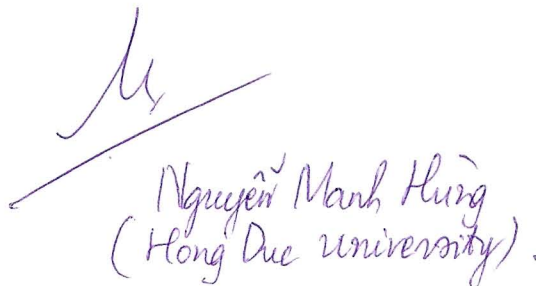 Nguyễn Manh Hùng
(Hong Duc university).